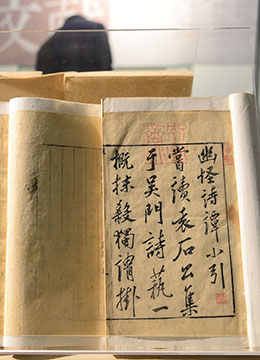 幽怪詩譚小引
嘗讀袁石公集
于吴門詩藝一
概抹殺獨謂掛